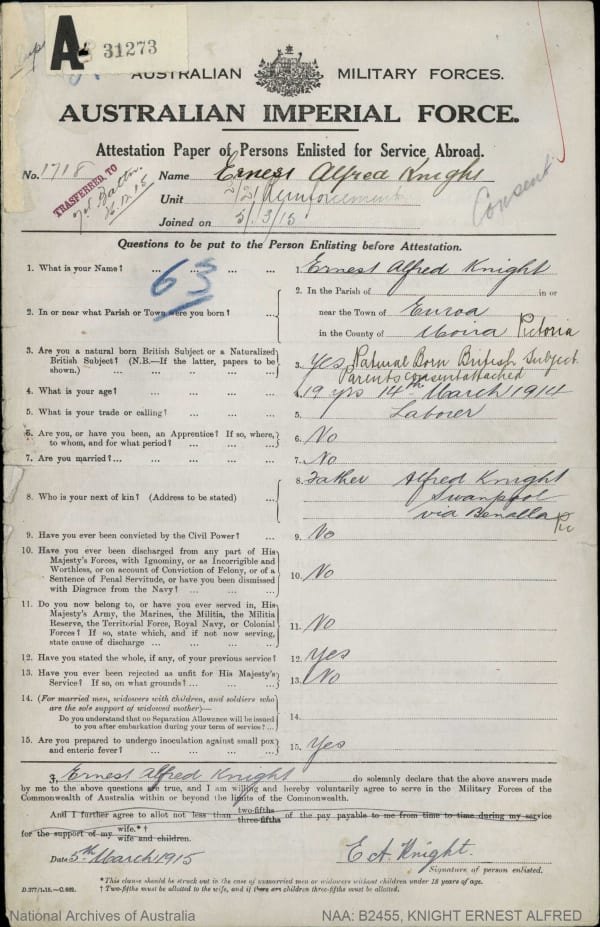 A- 31273
AUSTRALIAN MILITARY FORCES.
AUSTRALIAN IMPERIAL FORCE.
Attestation Paper of Persons Enlisted for Service Abroad.
No. 1718 Name Ernest Alfred Knight
TRASFERRED TO
Battn.
Unit 2/21 Reinforcement
Consent
Joined on 5/3/15
Questions to be put to the Person Enlisting before Attestation.
63
1. What is your Name? ... ... ... ... 1. Ernest Alfred Knight
2. In or near what Parish or Town were you born? ... 2. In the Parish of in or
near the Town of Euroa
in the County of Moira Victoria
3. Are you a natural born British Subject or a Naturalized
British Subject? (N.B.—If the latter, papers to be
shown.) ... ... ... ... 3. Yes Natural Born British Subject
Parents consent attached
4. What is your age? ... ... ... ... 4. 19 yrs 14th March 1914
5. What is your trade or calling? ... ... ... 5. Laborer
6. Are you, or have you been, an Apprentice? If so, where,
to whom, and for what period? ... ... ... 6. No
7. Are you married? ... ... ... ... 7. No
8. Who is your next of kin? (Address to be stated) ... 8. Father Alfred Knight
Swanpool
via Benalla Vic
9. Have you ever been convicted by the Civil Power? ... 9. No
10. Have you ever been discharged from any part of His
Majesty's Forces, with Ignominy, or as Incorrigible and
Worthless, or on account of Conviction of Felony, or of a
Sentence of Penal Servitude, or have you been dismissed
with Disgrace from the Navy? ... ... 10. No
11. Do you now belong to, or have you ever served in, His
Majesty's Army, the Marines, the Militia, the Militia
Reserve, the Territorial Force, Royal Navy, or Colonial
Forces? If so, state which, and if not now serving,
state cause of discharge ... ... ... 11. No
12. Have you stated the whole, if any, of your previous service? 12. Yes
13. Have you ever been rejected as unfit for His Majesty's
Service? If so, on what grounds? ... ... 13. No
14. (For married men, widowers with children, and soldiers who
are the sole support of widowed mother)—
Do you understand that no Separation Allowance will be issued
to you after embarkation during your term of service? ... 14.
15. Are you prepared to undergo inoculation against small pox
and enteric fever? ... ... ... ... 15. Yes
I, Ernest Alfred Knight do solemnly declare that the above answers made
by me to the above questions are true, and I am willing and hereby voluntarily agree to serve in the Military Forces of the
Commonwealth of Australia within or beyond the limits of the Commonwealth.
And I further agree to allot not less than two-fifths
three-fifths of the pay payable to me from time to time during my service
for the support of my wife.*†
wife and children.
Date 5th March 1915 E A Knight.
Signature of person enlisted.
*This clause should be struck out in the case of unmarried men or widowers without children under 18 years of age.
† Two-fifths must be allotted to the wife, and if there are children three-fifths must be allotted.
D.377/1.15.—C.892.
National Archives of Australia NAA: B2455, KNIGHT ERNEST ALFRED